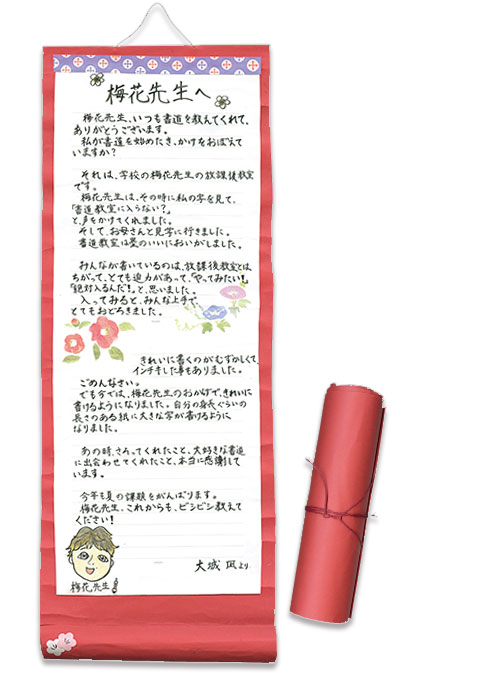 梅花先生へ
梅花先生、いつも書道を教えてくれて、
ありがとうございます。
私が書道を始めたきっかけをおぼえて
いますか?
それは、学校の梅花先生の放課後教室
です。
梅花先生は、その時に私の字を見て、
「書道教室に入らない?」
と、声をかけてくれました。
そして、お母さんと見学に行きました。
書道教室は墨のいいにおいがしました。
みんなが書いているのは、放課後教室とは
ちがって、とても迫力があって、「やってみたい!」
「絶対入るんだ!」と、思いました。
入ってみると、みんな上手で、
とてもおどろきました。
きれいに書くのがむずかしくて、
インチキした事もありました。
ごめんなさい。
でも今では、梅花先生のおかげで、きれいに
書けるようになりました。自分の身長ぐらいの
長さのある紙に大きな字が書けるように
なりました。
あの時、さそってくれたこと、大好きな書道
に出会わせてくれたこと、本当に感謝して
います。
今年も夏の課題をがんばります。
梅花先生、これからも、ビシビシ教えて
ください!
大城 凪より
梅花先生